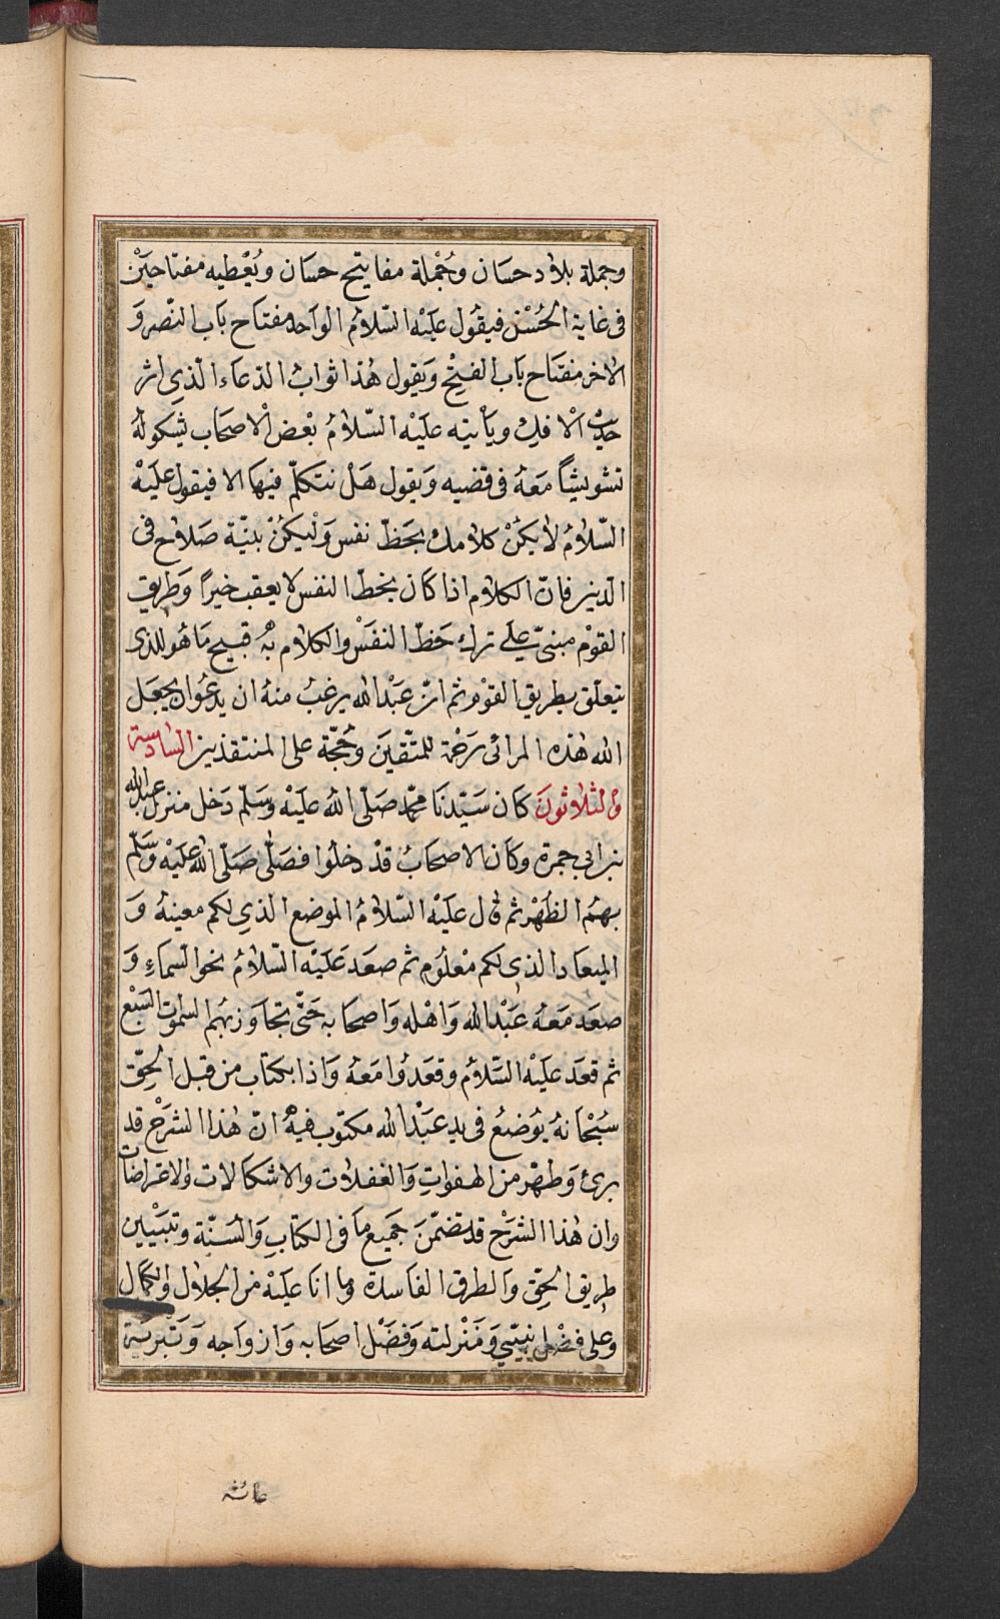 وجملة بلاد حسَان وجُمْلة مفاتيح حسَان ويُعْطيه مفتاحيَنْ
فى غاية الحُسْن فيقُول عليْه السّلامُ الواحد مفتاح باب النّصر وَ
الاخر مفتاح بَاب الفتْح وَيقول هٰذا ثوابُ الدّعاء الّذى اثر
حَديْث الْافك وياْتيه عليْه السّلامُ بعْض الْاصحَاب يشكو لهُ
تشويشاً مَعهُ فى قضيه وَيقول هَلْ نتكلّم فيهَا الا فيقول عليْهْ
السّلامُ لا يكنْ كلامك بحَظّ نفس وَلْيكنْ بنيّة صَلاح فى
الدّين فانّ الكلام اذا كان بخطّ النفس لا يعقب خيراً وَطريق
القوْم مبنىّ على ترك حَظّ النفسْ والكلام به قبيح مَا هُو للذى
يتعلّق بطريق القوْم ثم انّ عَبْد الله يرغبُ منهُ ان يدعُو ان يجعَل
الله هٰذه المرائى رَحْمة للمتّقينَ وحُجّة على المنتقدين السّادسة
والثلاثونَ كان سَيّدنَا محمّد صَلّى اللهُ عليْه وسَلّم دَخل منزل عبدالله
بن ابى جمرة وكان الاصحَابُ قدْ دخلوا فصَلّى صَلّى اللهُ عليْه وسَلّم
بهمُ الظُهْر ثم قال عليْه السّلامُ الموضع الذى لكم معينهُ وَ
الميعَاد الذى لكم معْلوُم ثم صعَد عَليْه السّلامُ نحو السّماءِ وَ
صعَد مَعهُ عَبْد الله وَاهْله وَاصحَابه حَتّى تجاوَز بهُم السّموات السّبْع
ثم قعَد عليْه السّلامُ وقعَدُوا مَعهُ وَاذا بكتاب من قبل الحقّ
سُبْحَانهُ يوُضعُ فى يد عبْد الله مكتوب فيهْ انّ هٰذا الشرَحْ قد
برئ وَطهْر من الهفواتِ وَالغفلات والاشكالات والاعتراضات
وان هٰذا الشرَحْ قد تضمّنَ جَميع مَا فى الكتابِ وَالسُنّة وتبْيين
طريق الحقّ وَالطرق الفاسدة وما انا عليْه من الجلال والكمال
وعلى فضْل نبيّى وَمَنْزلته وَفضْل اصحَابه وَازواجه وَتبْرئة
عائشه